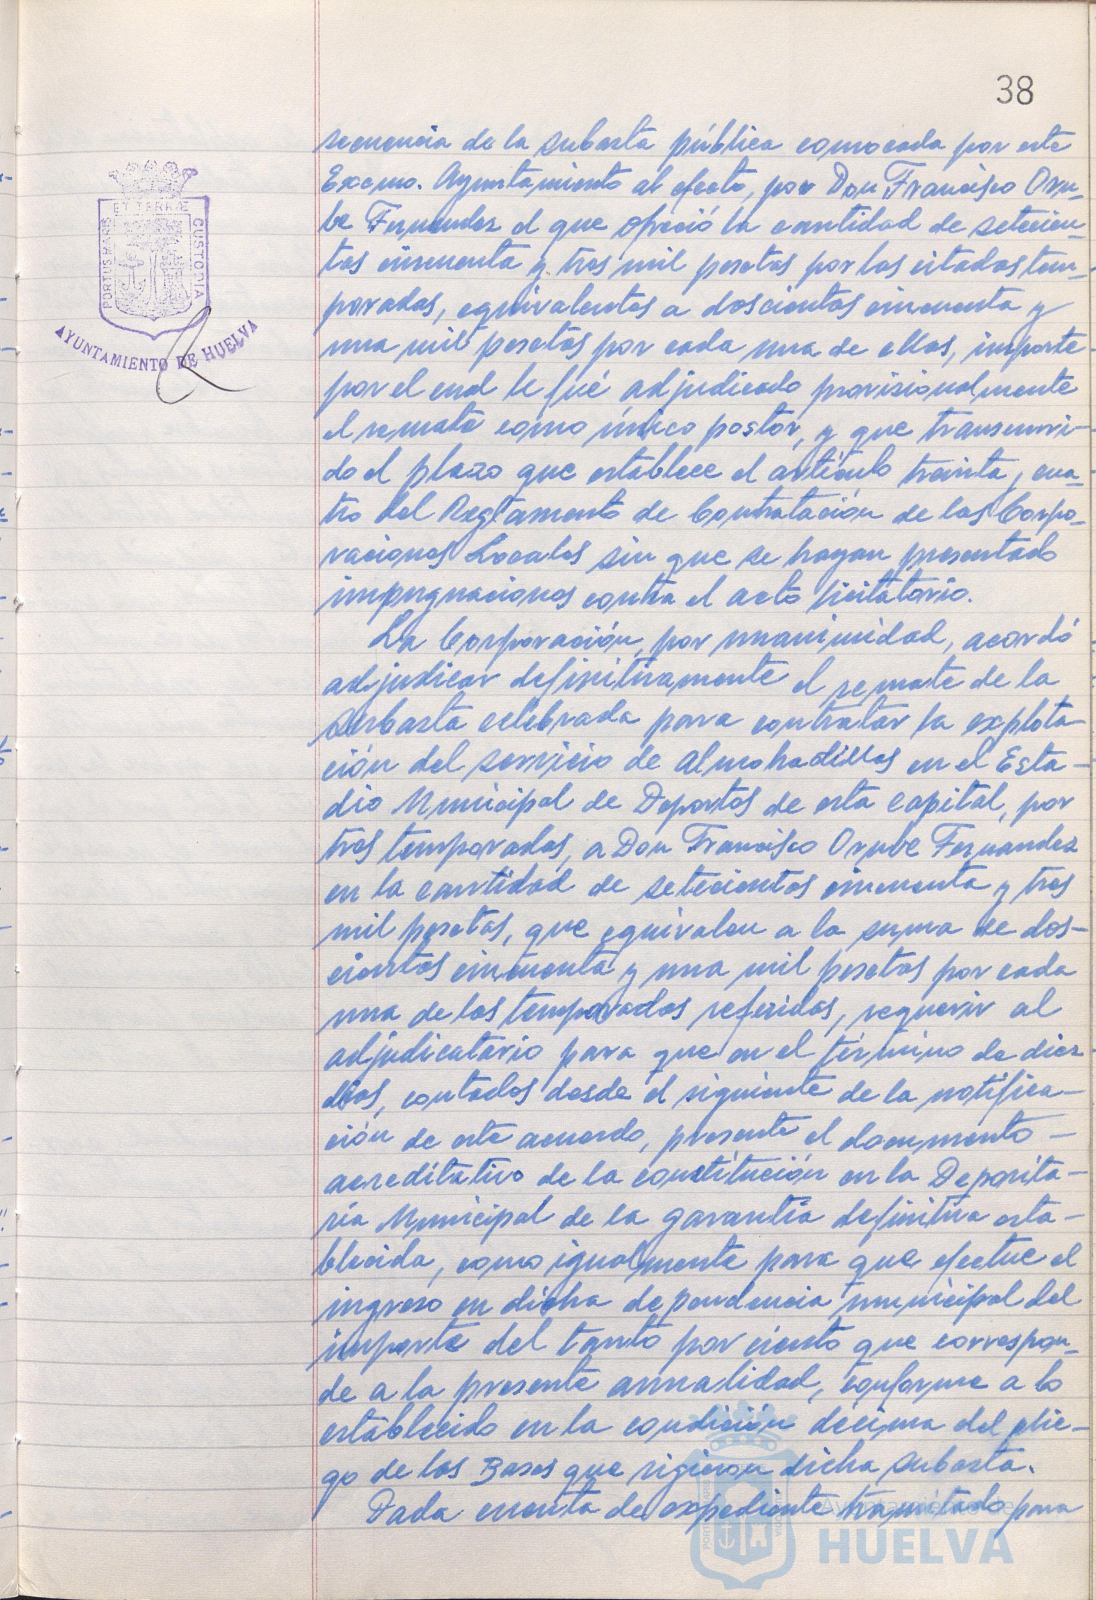 38
PORTUS MARIS
ET TERRÆ
CUSTODIA
AYUNTAMIENTO DE HUELVA
secuencia de la subasta pública convocada por este
Excmo. Ayuntamiento al efecto, por Don Francisco Oru-
be Fernandez el que ofreció la cantidad de setecien-
tas cincuenta y tres mil pesetas por las citadas tem-
poradas, equivalentes a doscientas cincuenta y
una mil pesetas por cada una de ellas, importe
por el cual le fué adjudicado provisionalmente
el remate como único postor, y que transcurri-
do el plazo que establece el artículo treinta y cua-
tro del Reglamento de Contratación de las Corpo-
raciones Locales sin que se hayan presentado
impugnaciones contra el acto licitatorio.
La Corporación, por unanimidad, acordó
adjudicar definitivamente el remate de la
subasta celebrada para contratar la explota-
ción del servicio de almohadillas en el Esta-
dio Municipal de Deportes de esta capital, por
tres temporadas, a Don Francisco Orube Fernandez
en la cantidad de setecientas cincuenta y tres
mil pesetas, que equivalen a la suma de dos-
cientas cincuenta y una mil pesetas por cada
una de las temporadas referidas, requerir al
adjudicatario para que en el término de diez
días, contados desde el siguiente de la notifica-
ción de este acuerdo, presente el documento -
acreditativo de la constitución en la Deposita-
ría Municipal de la garantía definitiva esta-
blecida, como igualmente para que efectue el
ingreso en dicha dependencia municipal del
importe del tanto por ciento que correspon-
de a la presente anualidad, conforme a lo
establecido en la condición décima del plie-
go de las Bases que rigieron dicha subasta.
Dada cuenta de expediente tramitado para
Ayuntamiento de
HUELVA